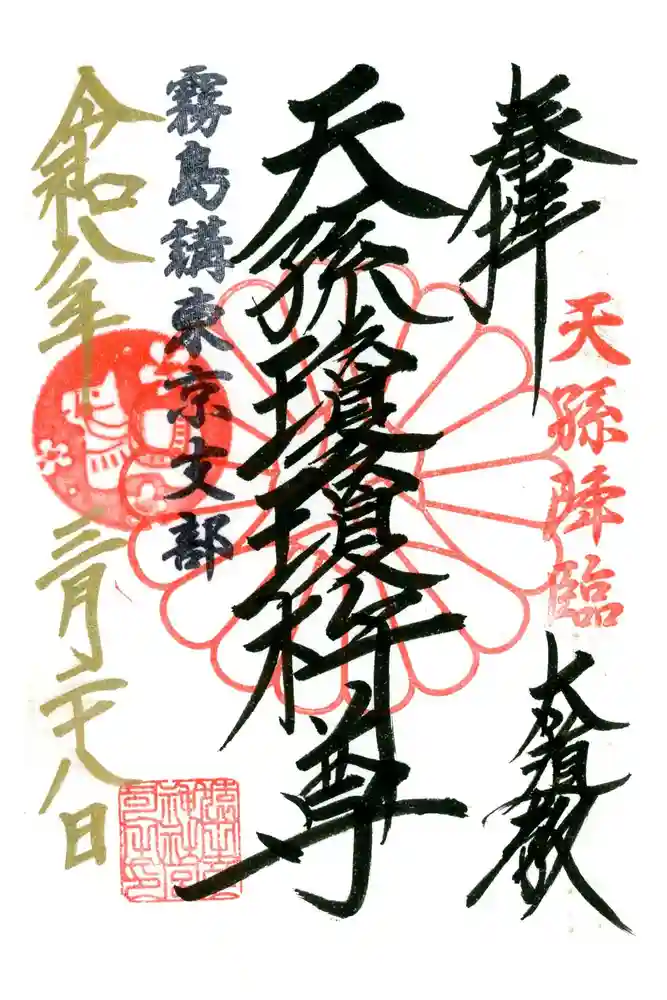 奉拝
天孫降臨
天孫瓊瓊杵尊
霧島講東京支部
令和八年三月二十八日